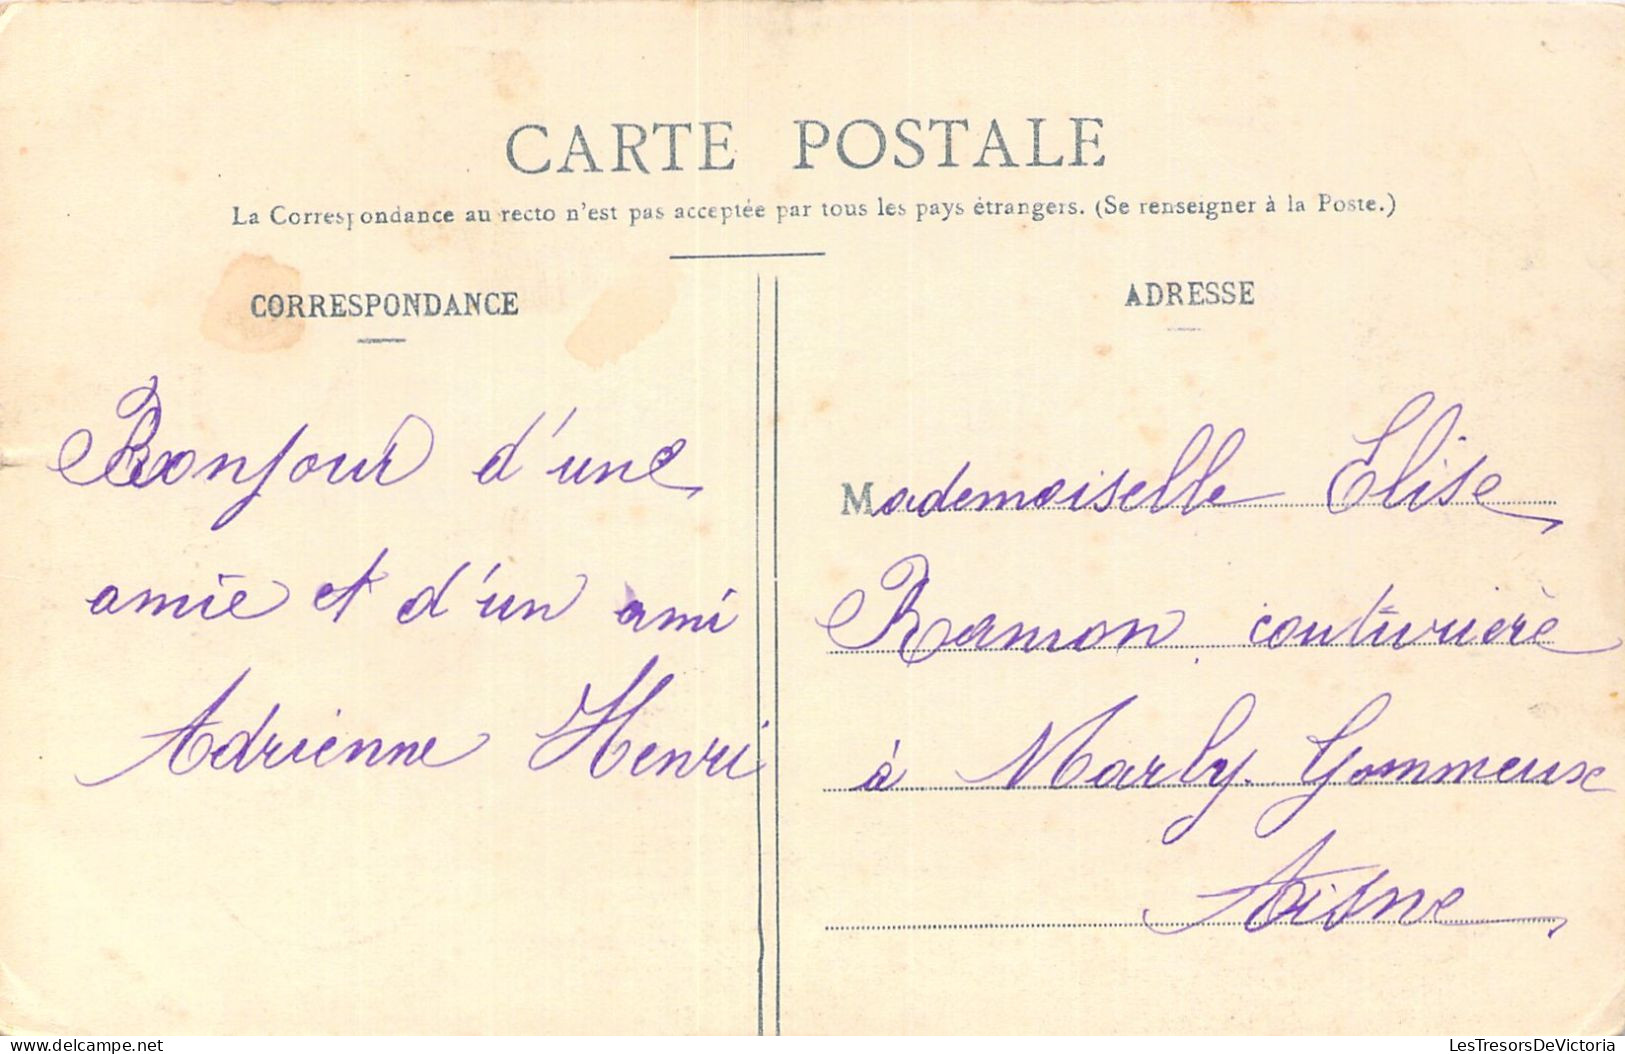 CARTE POSTALE
La Correspondance au recto n'est pas acceptée par tous les pays étrangers. (Se renseigner à la Poste.)
CORRESPONDANCE
Bonjour d'une
amie et d'un ami
Adrienne Henri
ADRESSE
Mademoiselle Elise
Ramon couturière
à Marly Gommeux
Aisne
delcampe.net
LesTresorsDeVictoria